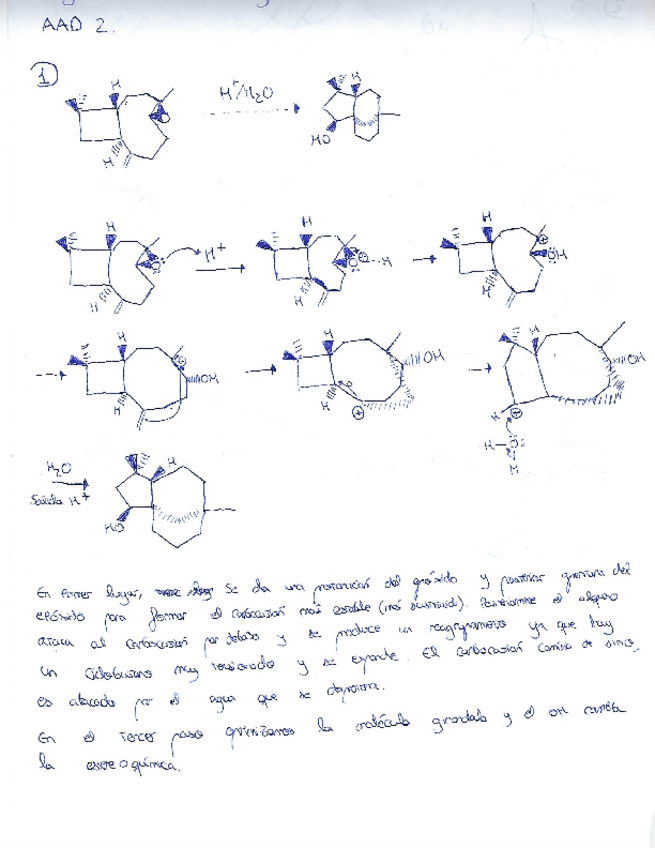 AAD 2.
1
H H⁺/H₂O H
O
H HO
H H H
O: H⁺ O: ⊕ H ⊕ :OH
H H H
H H
⊕ OH OH OH
H H ⊕ H ⊕
H—O:
H
H₂O H
Salida H⁺
HO
En primer lugar, se da una protonación del epóxido y posterior apertura del
epóxido para formar el carbocatión más estable (más sustituido). Posteriormente el alqueno
ataca al carbocatión por debajo y se produce un reagrupamiento ya que hay
un ciclobutano muy tensionado y se expande. El carbocatión cambia de sitio,
es atacado por el agua que se desprotona.
En el tercer paso la molécula girandola y el OH cambia
la estereoquímica.